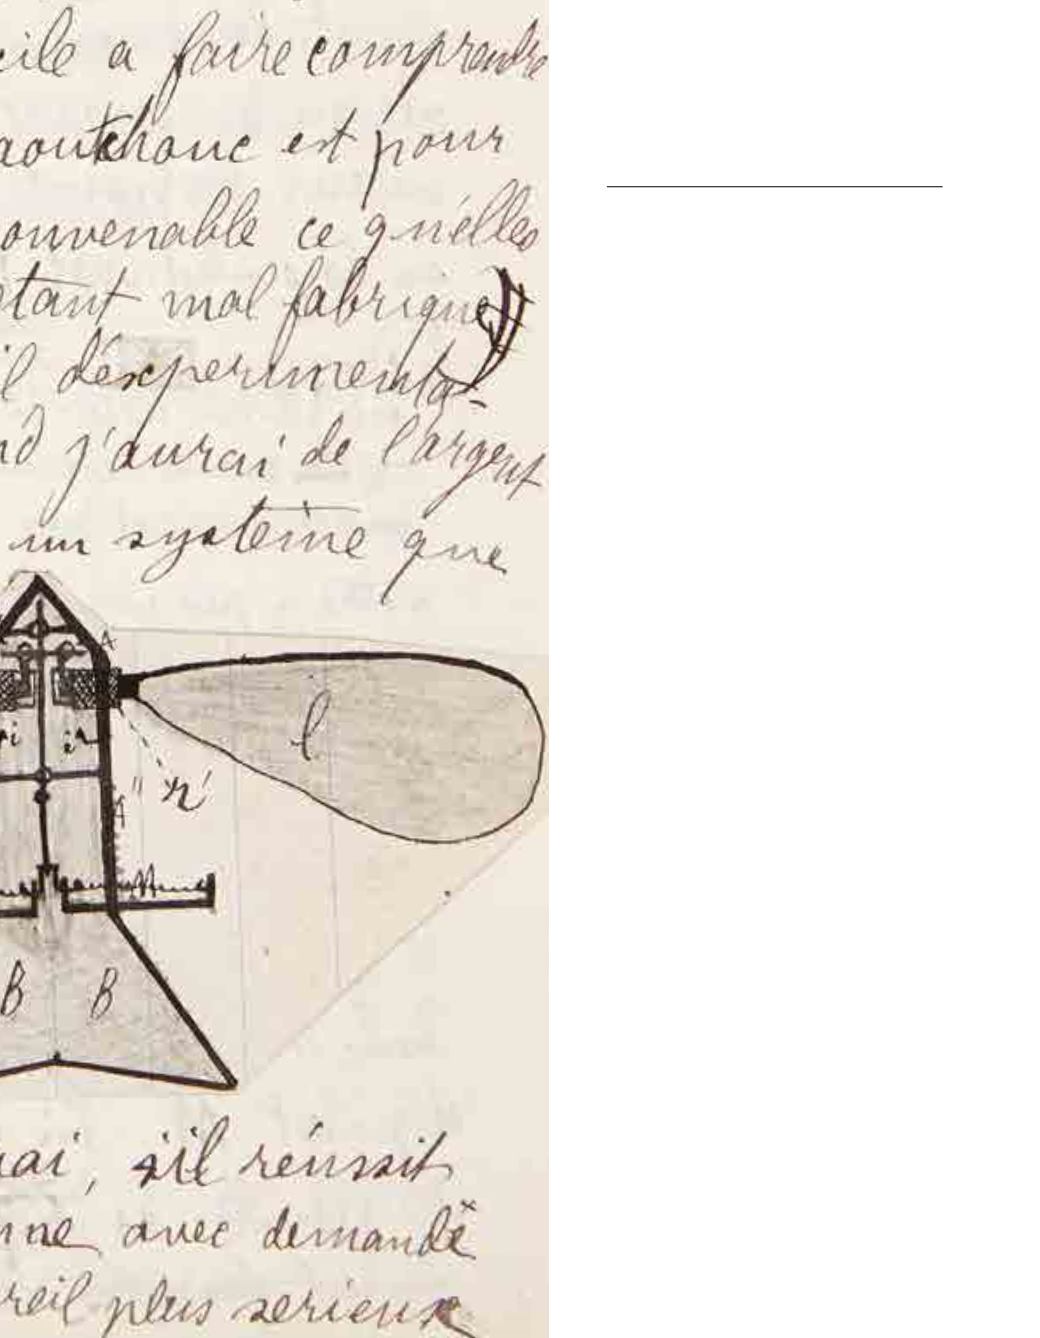 cile a faire comprendre
aoutchouc est pour
onvenable ce qu'elles
etant mal fabrique
il d'experimenta-
nd j'aurai de l'argent
un systeme que
A
l
i
r'
A"
B B
rai, s'il réussit
nne avec demande
reil plus serieux